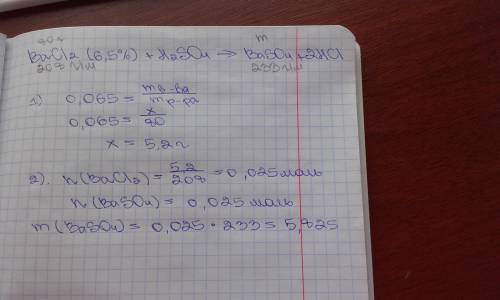 80г m
BaCl2 (6,5%) + H2SO4 → BaSO4 + 2HCl
208 г/м 233 г/м
1) 0,065 = mв-ва / mр-ра
0,065 = x / 80
x = 5,2 г
2). n(BaCl2) = 5,2 / 208 = 0,025 моль
n(BaSO4) = 0,025 моль
m(BaSO4) = 0,025 · 233 = 5,825